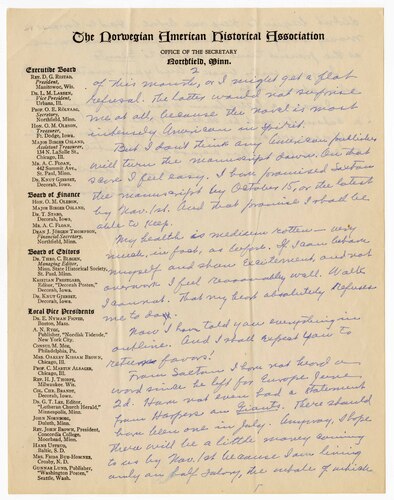 The Norwegian American Historical Association
OFFICE OF THE SECRETARY
Northfield, Minn.
2
Executive Board
REV. D. G. RISTAD,
President,
Manitowoc, Wis.
DR. L. M. LARSEN,
Vice President,
Urbana, Ill.
PROF. O. E. RÖLVAAG,
Secretary,
Northfield, Minn.
HON. O. M. OLESON,
Treasurer,
Ft. Dodge, Iowa.
MAJOR BIRGER OSLAND,
Assistant Treasurer,
134 N. LaSalle St.,
Chicago, Ill.
MR. A. C. FLOAN,
442 Summit Ave.,
St. Paul, Minn.
DR. KNUT GJERSET,
Decorah, Iowa.
Board of Finance
HON. O. M. OLESON,
MAJOR BIRGER OSLAND,
DR. T. STABO,
Decorah, Iowa.
MR. A. C. FLOAN,
DEAN J. JÖRGEN THOMPSON,
Financial Secretary,
Northfield, Minn.
Board of Editors
DR. THEO. C. BLEGEN,
Managing Editor,
Minn. State Historical Society,
St. Paul, Minn.
KRISTIAN PRESTGARD,
Editor, "Decorah Posten,"
Decorah, Iowa.
DR. KNUT GJERSET,
Decorah, Iowa.
Local Vice Presidents
DR. E. NYMAN FIGVED,
Boston, Mass.
A. N. RYGG,
Publisher, "Nordisk Tidende,"
New York City.
CONSUL M. MOE,
Philadelphia, Pa.
MRS. OAKLEY KISSAM BROWN,
Chicago, Ill.
PROF. C. MARTIN ALSAGER,
Chicago, Ill.
REV. H. J. THORPE,
Milwaukee, Wis.
COL. CHR. BRANDT,
Decorah, Iowa.
DR. G. T. LEE, Editor,
"Lutheran Church Herald,"
Minneapolis, Minn.
JOHN NORBORG,
Duluth, Minn.
REV. JOHN BROWN, President,
Concordia College,
Moorhead, Minn.
HANS USTRUD,
Baltic, S. D.
MRS. FRIDA BUE-HOMNES,
Crosby, N. D.
GUNNAR LUND, Publisher,
"Washington Posten,"
Seattle, Wash.
of this month, or I might get a flat
refusal. The latter would not surprise
me at all, because the novel is most
intensely American in spirit.
But I don't think any American publisher
will turn the manuscript down. On that
score I feel easy. I have promised Saxton
the manuscript by October 15, or the latest
by Nov. 1st. And that promise I shall be
able to keep.
My health is medium rotten — very
much, in fact, as before. If I can behave
myself and shun excitement, and not
overwork I feel reasonably well. Walk
I cannot. That my heart absolutely refuses
me to do.
Now I have told you everything in
outline. And I shall expect you to
return favors!
From Saxton I have not heard a
word since he left for Europe June
2d. Have not even had a statement
from Harpers on Giants. There should
have been one in July. Anyway, I hope
there will be a little money coming
to us by Nov. 1st because I am living
only on half salary, the whole of which